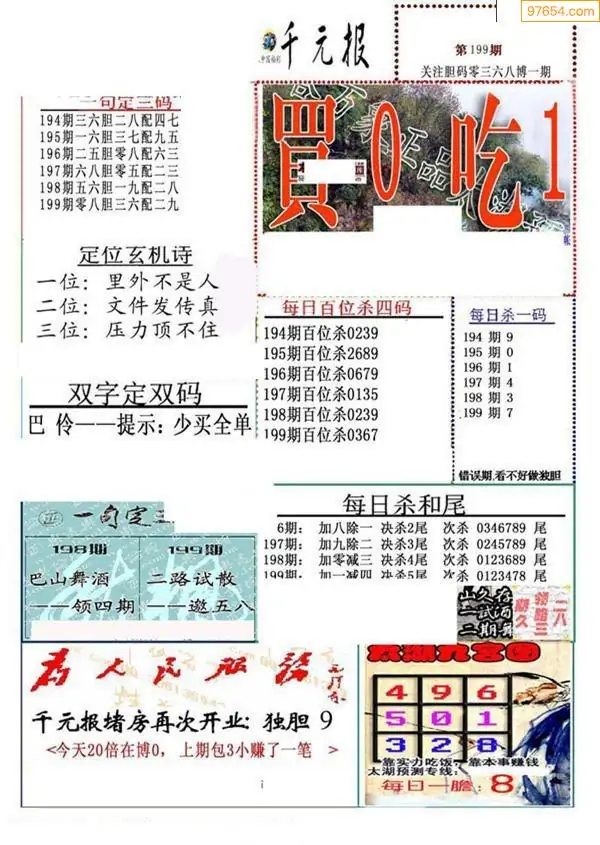 97654.com
千元报
第199期
关注胆码零三六八博一期
一句定三码
194期三六胆二八配四七
195期一六胆三七配九五
196期二五胆零八配六三
197期六八胆零五配二三
198期五六胆一九配二八
199期零八胆三六配二九
買0吃1
定位玄机诗
一位：里外不是人
二位：文件发传真
三位：压力顶不住
双字定双码
巴 伶——提示：少买全单
每日百位杀四码
194期百位杀0239
195期百位杀2689
196期百位杀0679
197期百位杀0135
198期百位杀0239
199期百位杀0367
每日杀一码
194 期 9
195 期 0
196 期 1
197 期 4
198 期 3
199 期 7
错误期,看不好做独胆
每日杀和尾
6期: 加八除一 决杀2尾 次杀 0346789 尾
197期: 加九除二 决杀3尾 次杀 0245789 尾
198期: 加零减三 决杀4尾 次杀 0123689 尾
199期: 加一减四 决杀5尾 次杀 0123478 尾
一句定三
198期
巴山舞酒
——领四期
199期
二路试散
——邀五八
为人民服务
千元报堵房再次开业：独胆 9
<今天20倍在博0，上期包3小赚了一笔 >
太湖九宫图
4 9 6
5 0 1
3 2 8
靠实力吃饭，靠本事赚钱
太湖预测专线：
每日一胆：8